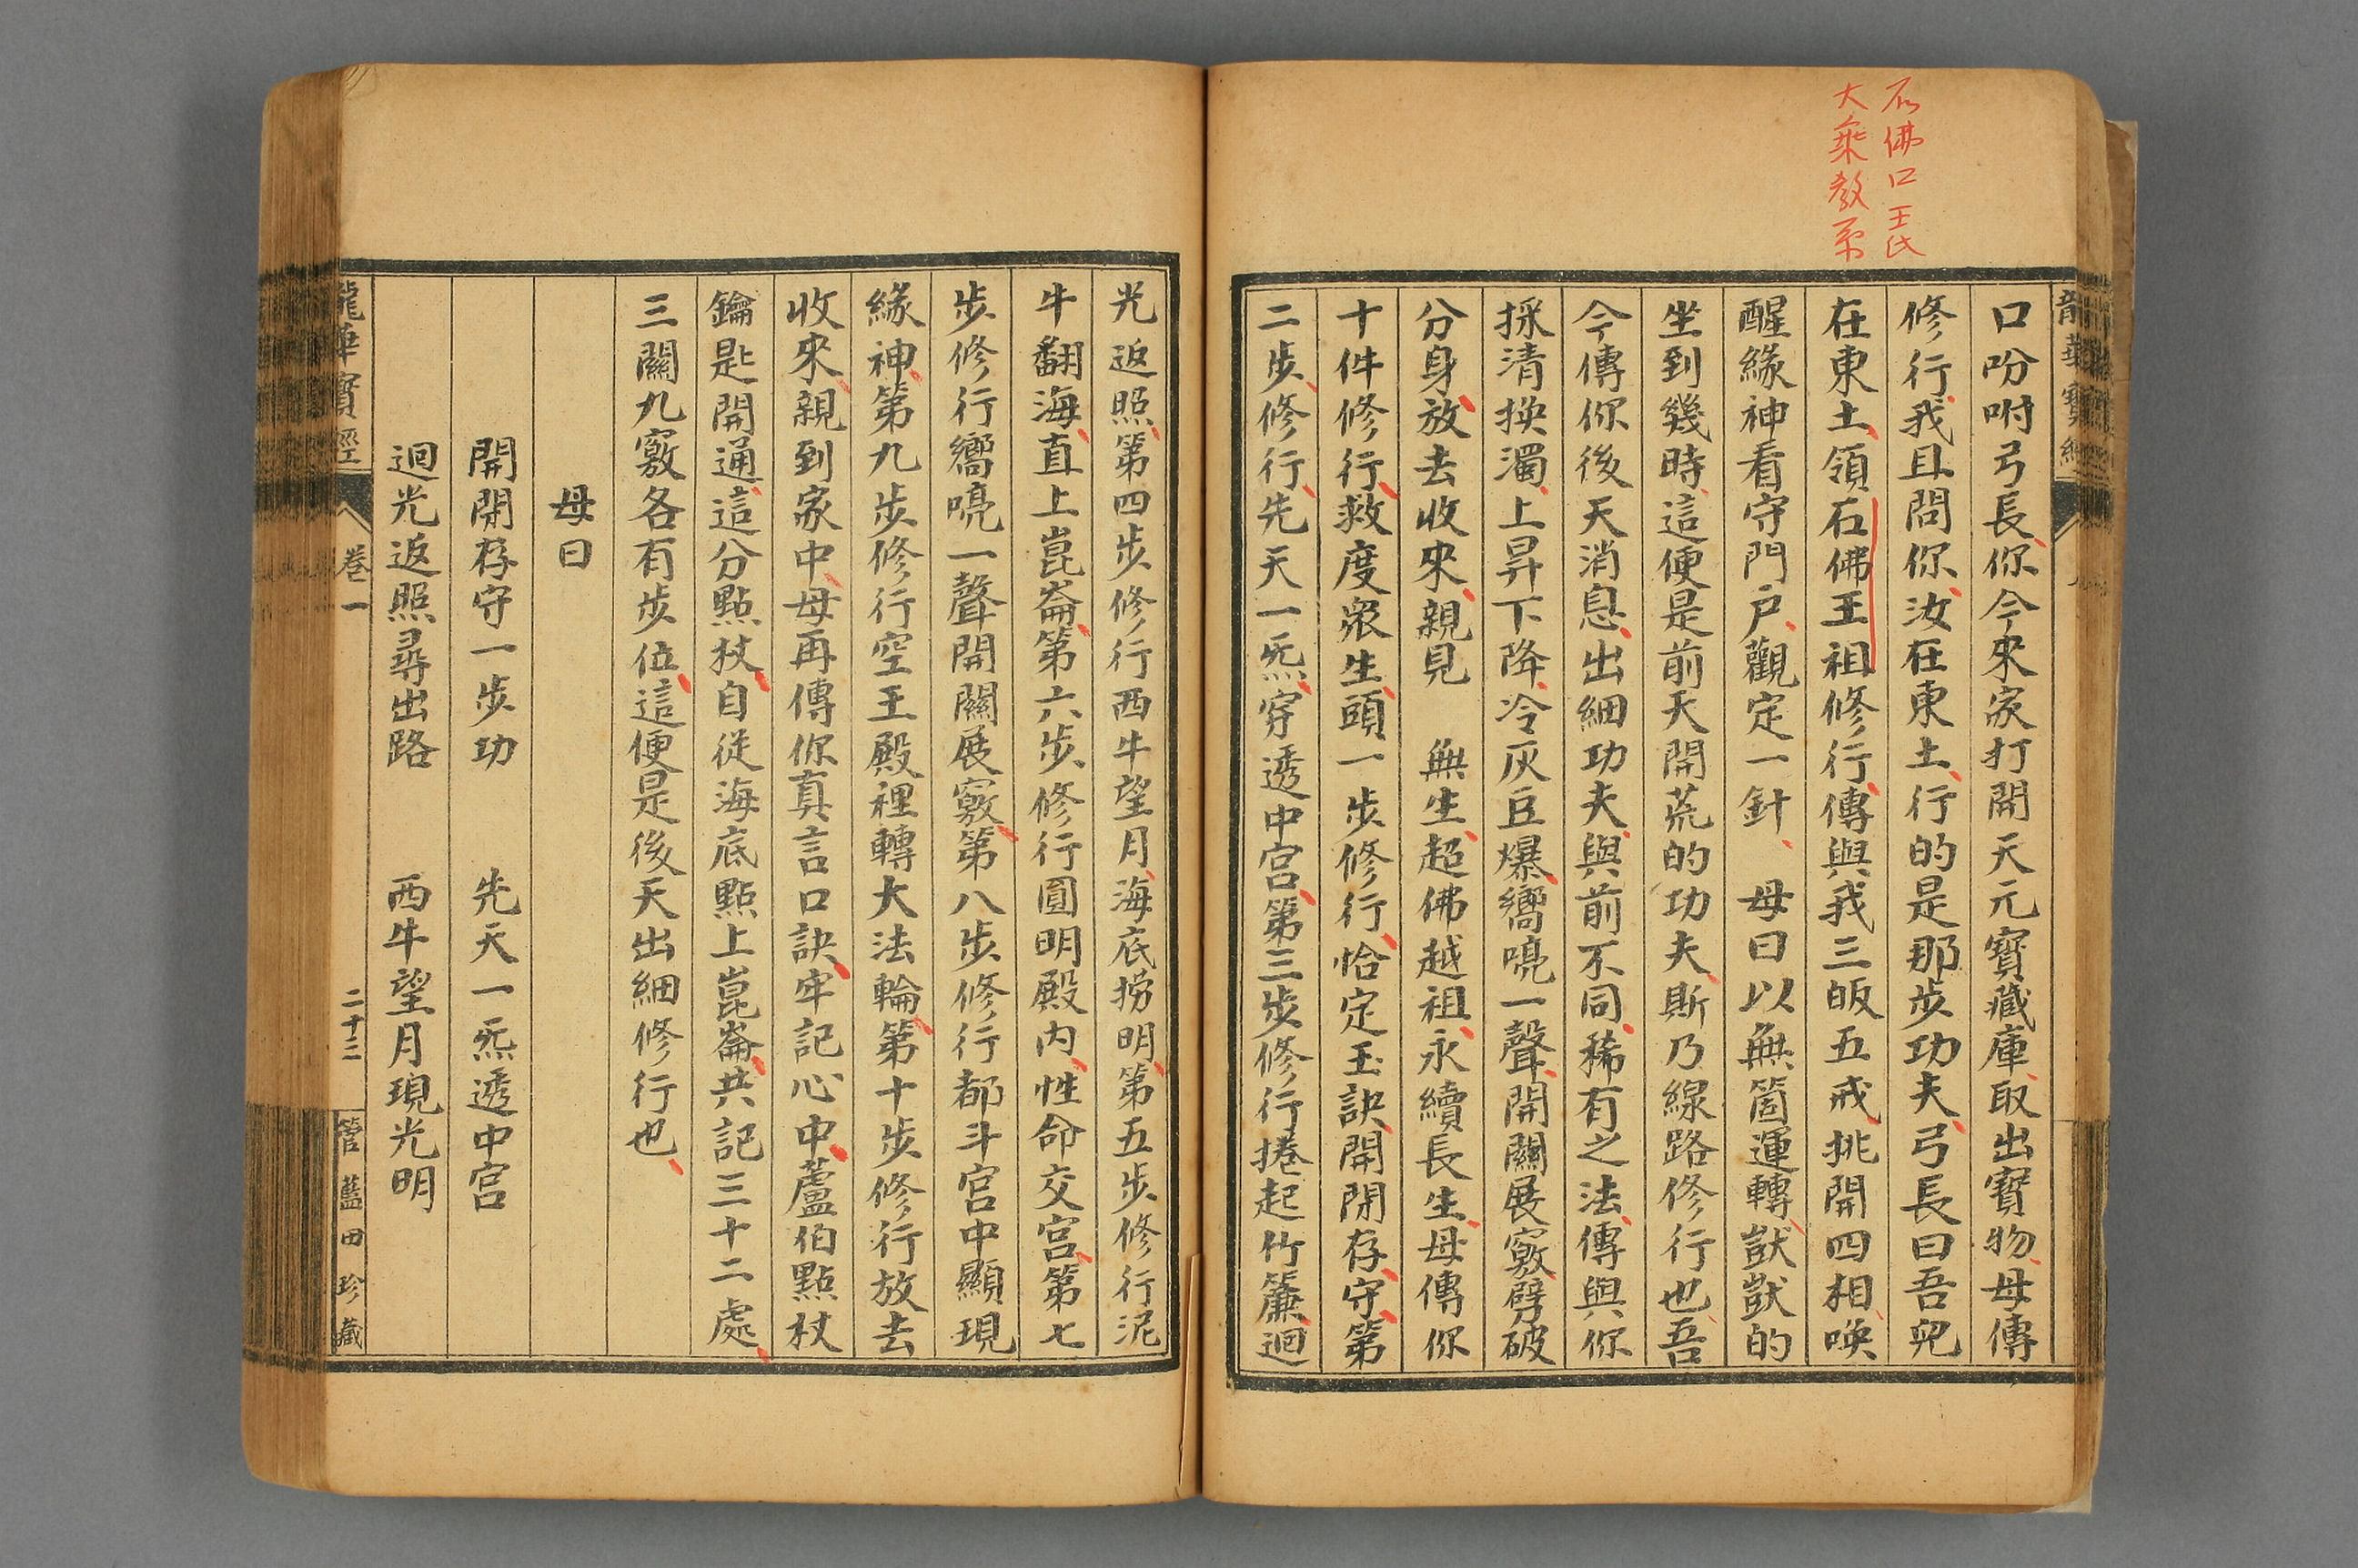 石佛口王氏
大乘教系
口吩咐弓長你今來家打開天元寶藏庫取出寶物母傳
修行我且問你汝在東土行的是那步功夫弓長曰吾兒
在東土領石佛王祖修行傳與我三皈五戒挑開四相喚
醒緣神看守門戶觀定一針 母曰以無箇運轉獃獃的
坐到幾時這便是前天開荒的功夫斯乃線路修行也吾
今傳你後天消息出細功夫與前不同稀有之法傳與你
採清換濁上昇下降冷灰豆爆嚮喨一聲開關展竅劈破
分身放去收來親見 無生超佛越祖永續長生母傳你
十件修行救度眾生頭一步修行恰定玉訣開閉存守第
二步修行先天一炁穿透中宮第三步修行捲起竹簾迴
光返照第四步修行西牛望月海底撈明第五步修行泥
牛翻海直上崑崙第六步修行圓明殿內性命交宮第七
步修行嚮喨一聲開關展竅第八步修行都斗宮中顯現
緣神第九步修行空王殿裡轉大法輪第十步修行放去
收來親到家中母再傳你真言口訣牢記心中蘆伯點杖
鑰匙開通這分點杖自從海底點上崑崙共記三十二處
三關九竅各有步位這便是後天出細修行也
母曰
開閉存守一步功 先天一炁透中宮
迴光返照尋出路 西牛望月現光明
龍華寶經 卷一 二十三 管藍田珍藏